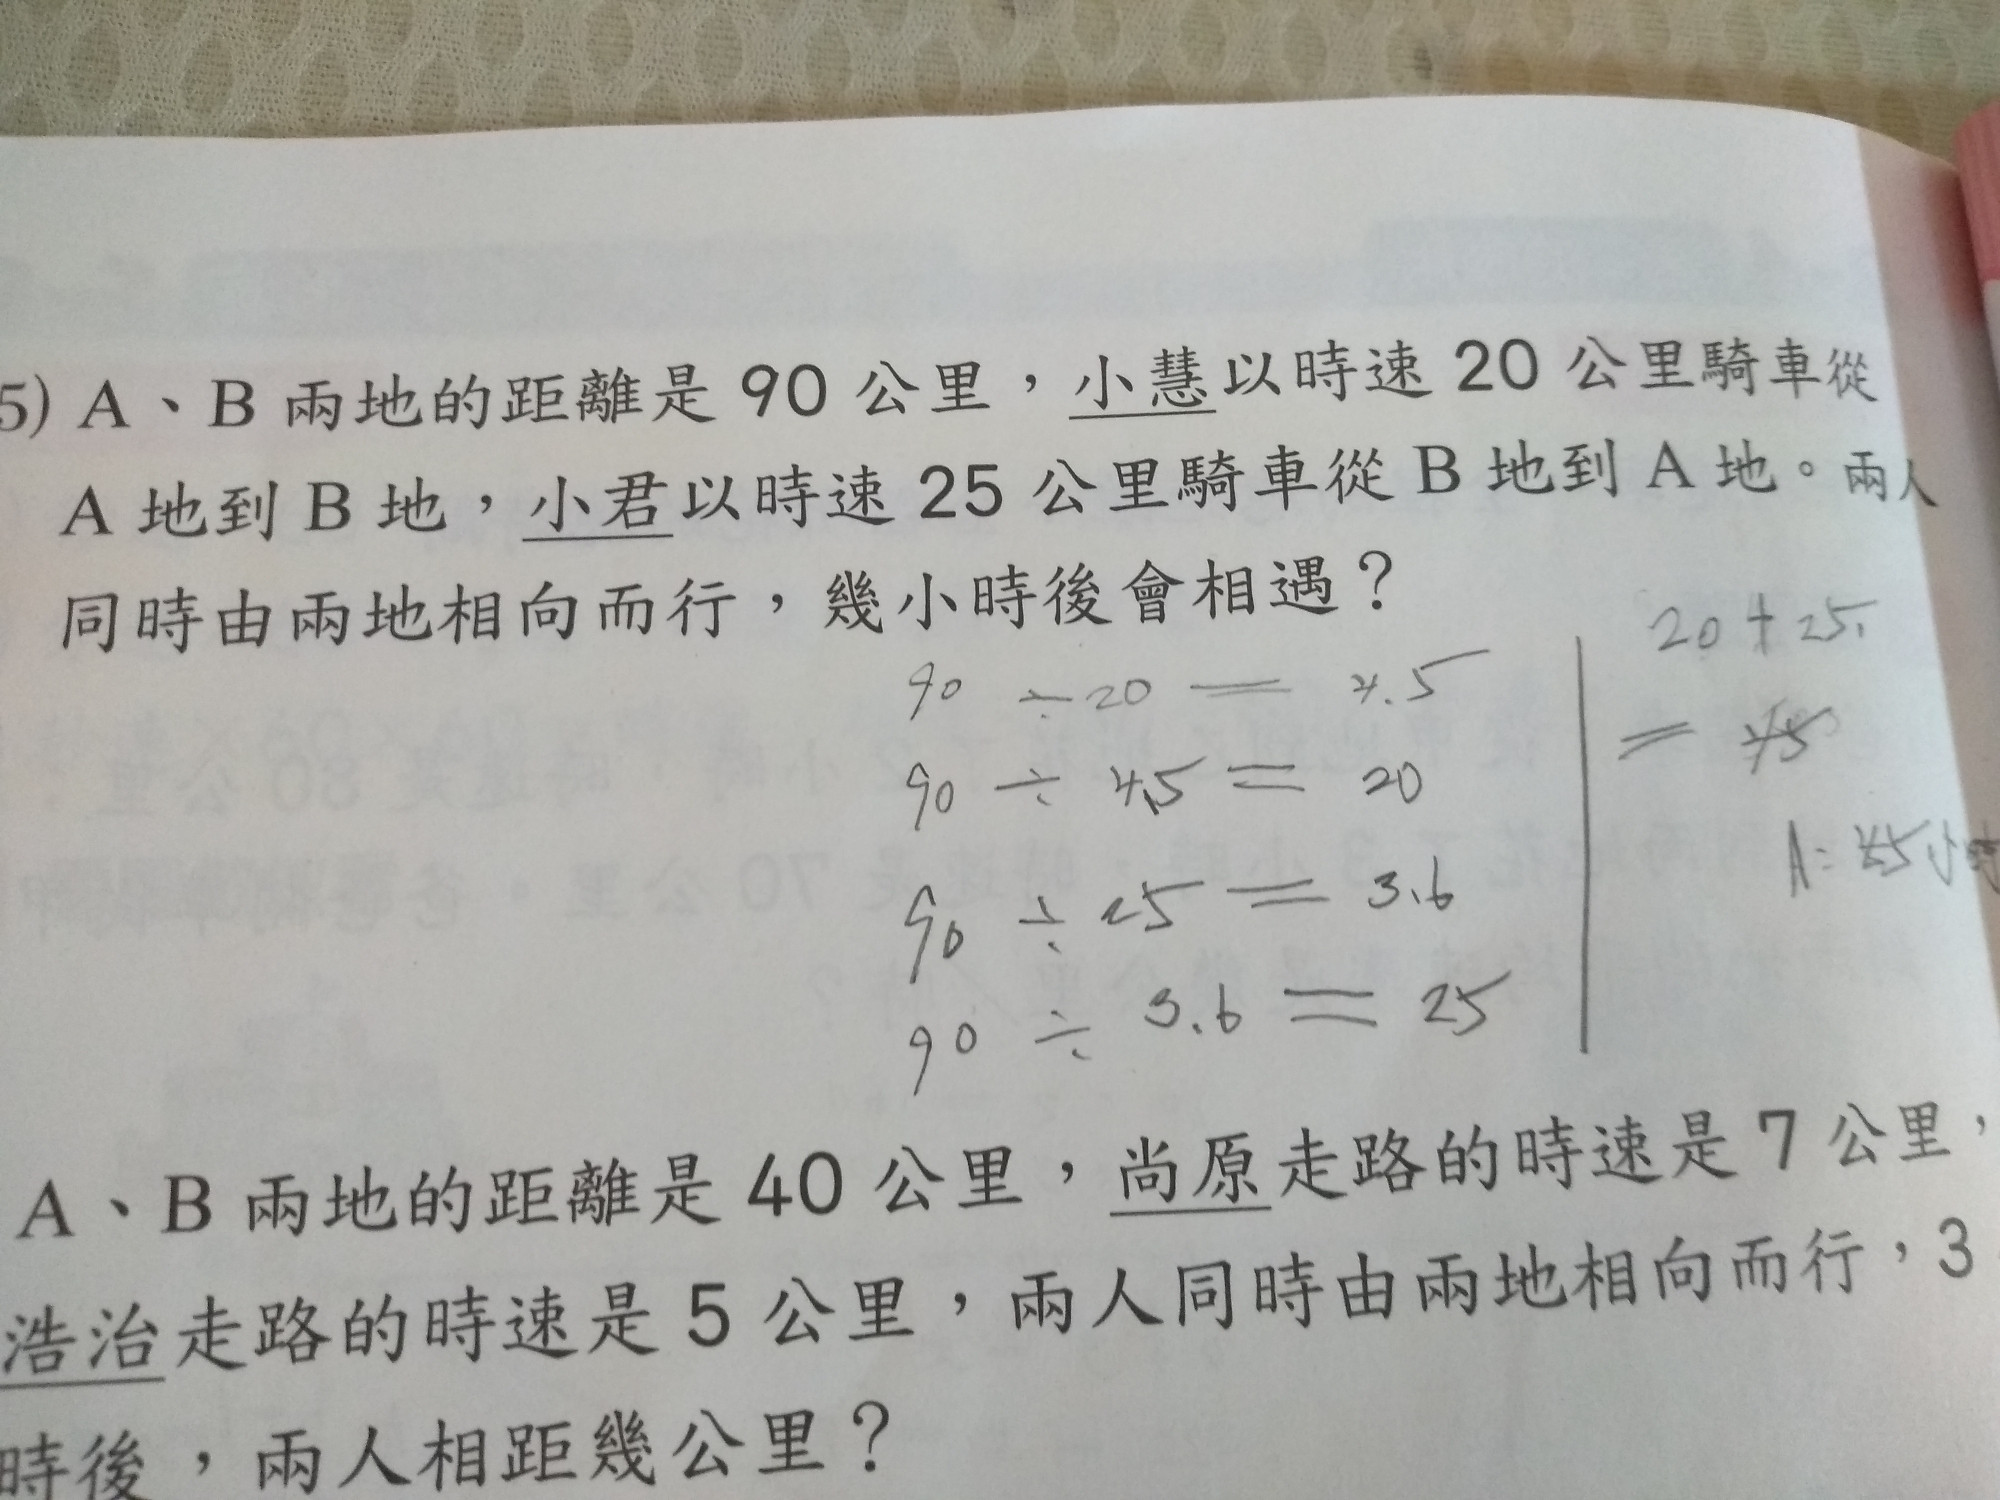 5) A、B 兩地的距離是 90 公里，小慧以時速 20 公里騎車從
A 地到 B 地，小君以時速 25 公里騎車從 B 地到 A 地。兩人
同時由兩地相向而行，幾小時後會相遇？
90 ÷ 20 = 4.5
90 ÷ 4.5 = 20
90 ÷ 25 = 3.6
90 ÷ 3.6 = 25
20 + 25
= 45
A = 45 小時
A、B 兩地的距離是 40 公里，尚原走路的時速是 7 公里，
浩治走路的時速是 5 公里，兩人同時由兩地相向而行，3
時後，兩人相距幾公里？